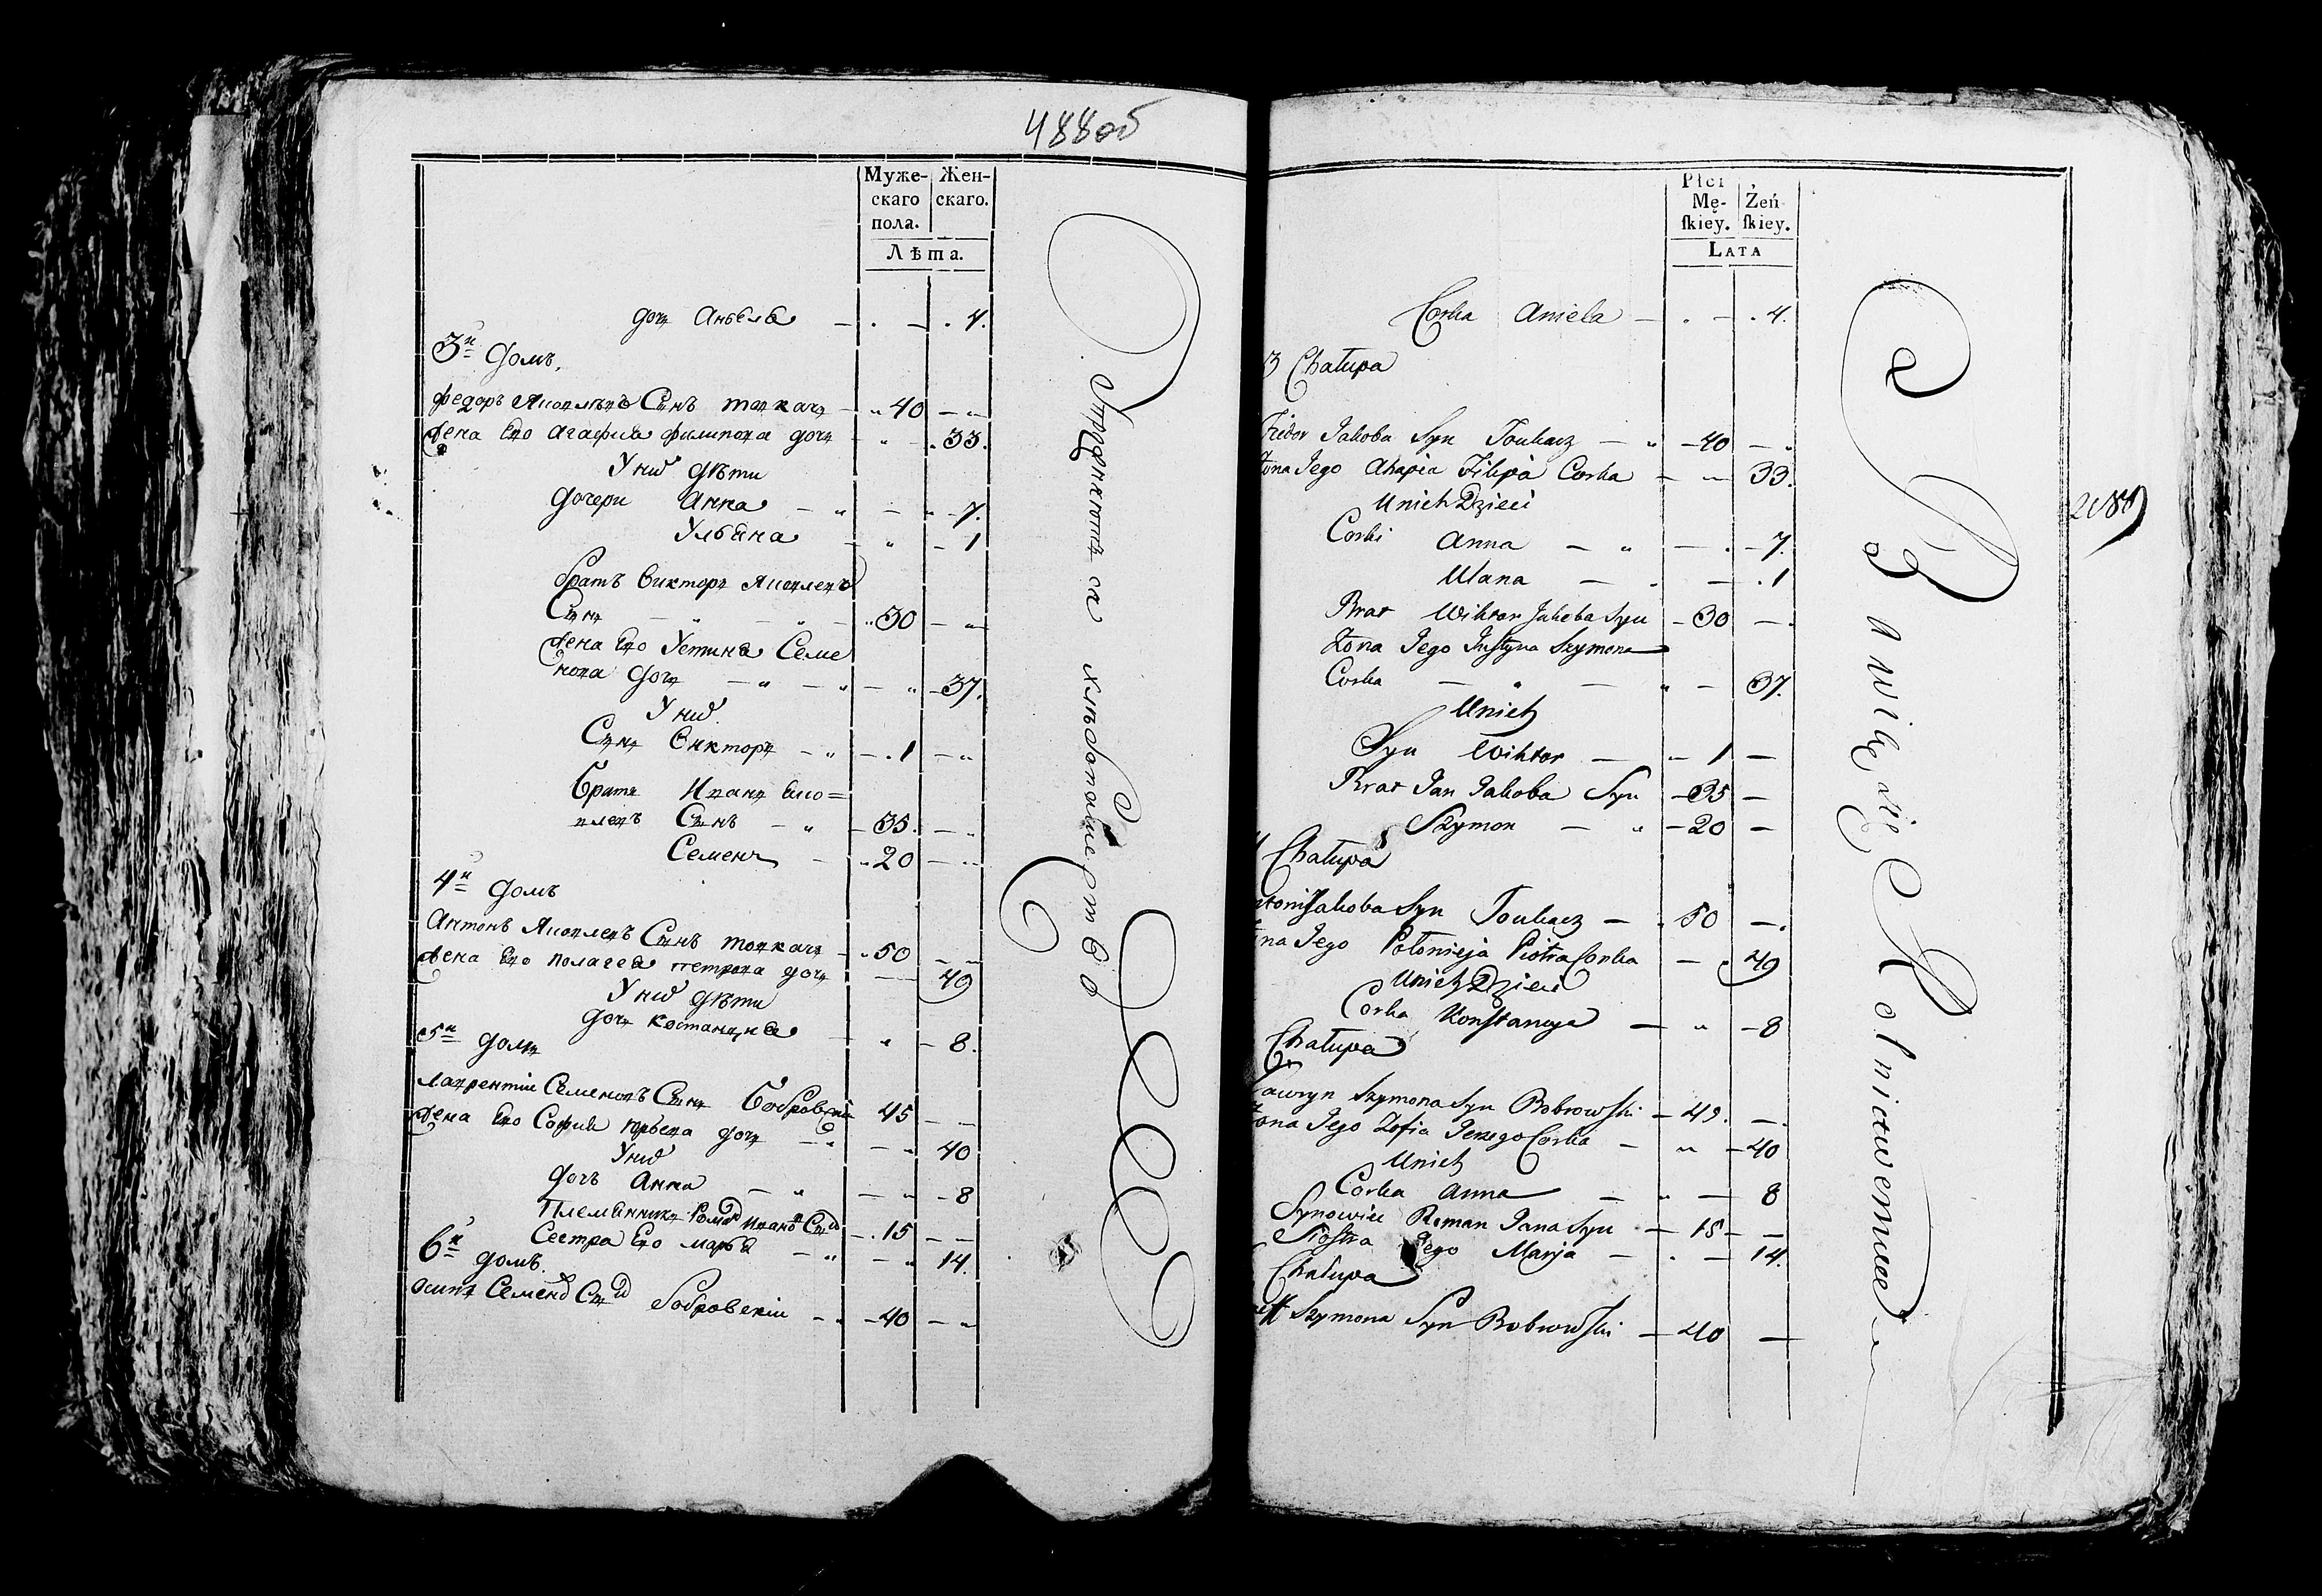 488об
Муже-
скаго
пола.
Жен-
скаго.
Лѣта.
дочь Анѣеля — . — . 4.
3й домъ.
Федоръ Яковлевъ Сынъ товкачъ — „ 40 — „
жена Его Агафия филипова дочь — „ — . 33.
У них дѣти
дочери Анна — „ — „ — 7.
Ульяна — „ — 1
братъ Викторъ Яковлевъ
Сынъ — „ — „ — „ 30 — „
жена Его Устиня Семе
нова дочь — „ — „ — „ — 37.
У них
Сынъ Викторъ — „ — . 1 — „
братъ Иванъ Яко=
влевъ Сынъ — „ — 35. — „
Семенъ — „ 20 — „
4й домъ
Антонъ Яковлевъ Сынъ товкачъ — „ 50 — —
жена Его полагея петрова дочь — — 49
У них дѣти
дочь Костанция — „ — 8.
5й домъ
лаврентiи Семеновъ Сынъ бобровскiи 45 — —
жена Его София юрьева дочь — „ — „ 40
У них
дочь Анна — „ — „ — 8
Племянникъ Романъ Ивановъ Сынъ — . 15 — —
Сестра Его марья — „ — „ 14.
6й домъ.
осипъ Семеновъ Сынъ бобровскiи — „ — 40 — „
Упражняются хлебопашеством
Płci
Mę-
skiey.
Żeń-
skiey.
LATA
Corka Aniela — . — . 4.
3 Chałupa
Fiedor Jakoba Syn Toukacz — „ — 40 — „
Żona Jego Ahapia Filipa Corka — „ — 33.
Unich Dzieci
Corki Anna — „ — . — 7.
Ulana — . — . 1
Brat Wiktor Jakoba Syn — 30 — .
Żona Jego Justyna Szymona
Corka — „ — „ — 37.
Unich
Syn Wiktor — „ — 1 —
Brat Jan Jakoba Syn — 35 —
Szymon — „ — 20 —
4 Chałupa
Antoni Jakoba Syn Toukacz — . 50 — .
Żona Jego Połonieja Piotra Corka — 49
Unich Dzieci
Corka Konstancya — „ — 8
Chałupa
Ławryn Szymona Syn Bobrowski — 45. — .
Żona Jego Zofia Jerzego Corka — „ — 40
Unich
Corka Anna — „ — 8
Synowiec Roman Jana Syn — 15 — —
Siostra Jego Marja — . — 14.
Chałupa
Szymona Syn Bobrowski — 40 —
Bawią się Rolnictwem
489